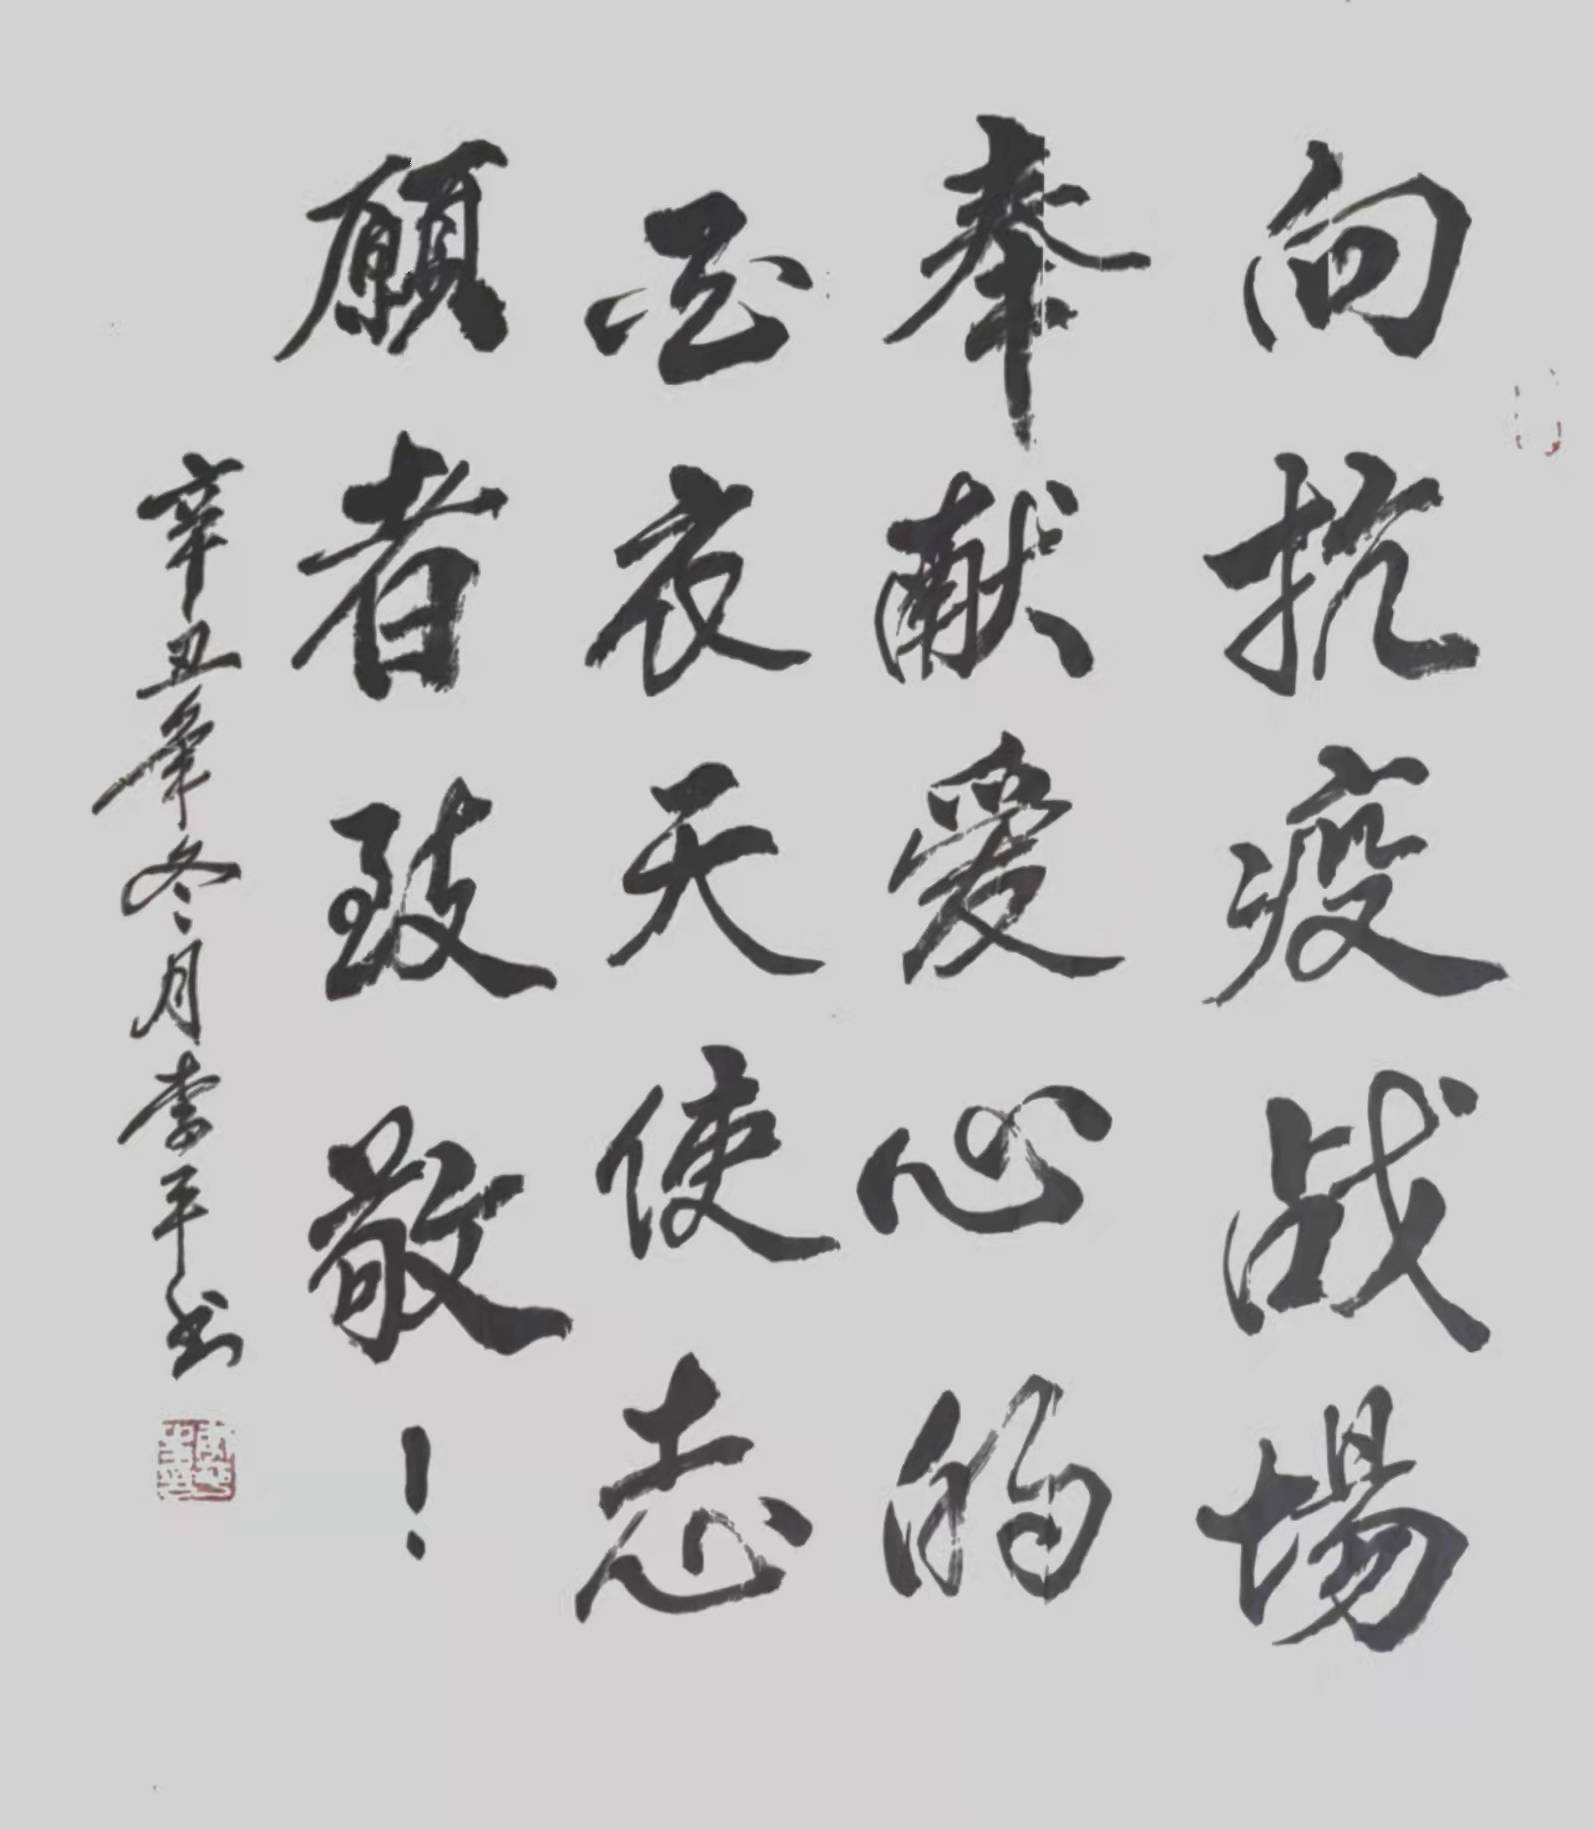 向抗疫战場
奉献爱心的
白衣天使志
願者致敬！
辛丑年冬月李平书